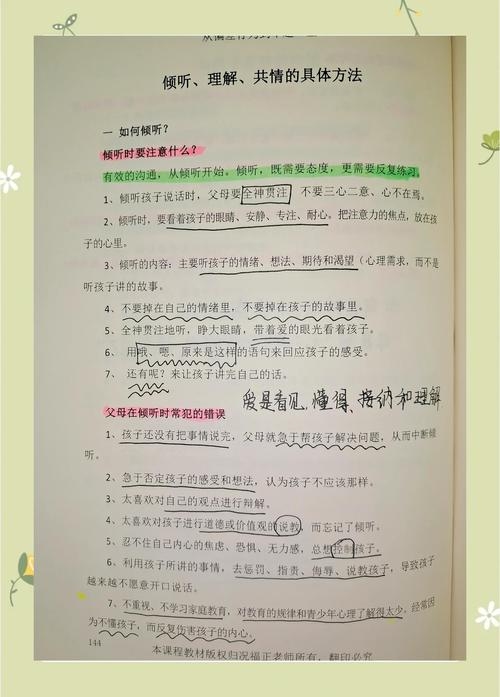 倾听、理解、共情的具体方法
一 如何倾听？
倾听时要注意什么？
有效的沟通，从倾听开始。倾听，既需要态度，更需要反复练习。
1、倾听孩子说话时，父母要全神贯注 不要三心二意、心不在焉。
2、倾听时，要看着孩子的眼睛、安静、专注、耐心。把注意力的焦点，放在孩
子的心里。
3、倾听的内容：主要听孩子的情绪、想法、期待和渴望（心理需求，而不是
听孩子讲的故事。
4、不要掉在自己的情绪里，不要掉在孩子的故事里。
5、全神贯注地听，睁大眼睛，带着爱的眼光看着孩子。
6、用哦、嗯、原来是这样的语句来回应孩子的感受。
7、还有呢？来让孩子讲完自己的话。
爱是看见、懂得、接纳和理解
父母在倾听时常犯的错误
1、孩子还没有把事情说完，父母就急于帮孩子解决问题，从而中断倾
听。
2、急于否定孩子的感受和想法，认为孩子不应该那样。
3、太喜欢对自己的观点进行辩解。
4、太喜欢对孩子进行道德或价值观的说教，而忘记了倾听。
5、忍不住自己内心的焦虑、恐惧、无力感，总想控制孩子。
6、利用孩子所讲的事情，去惩罚、指责、侮辱、说教孩子，导致孩子
越来越不愿意开口说话。
7、不重视、不学习家庭教育，对教育的规律和青少年心理了解得太少，经常因
为不懂孩子，而反复伤害孩子的内心。
144
本课程教材版权归况福正老师所有，翻印必究